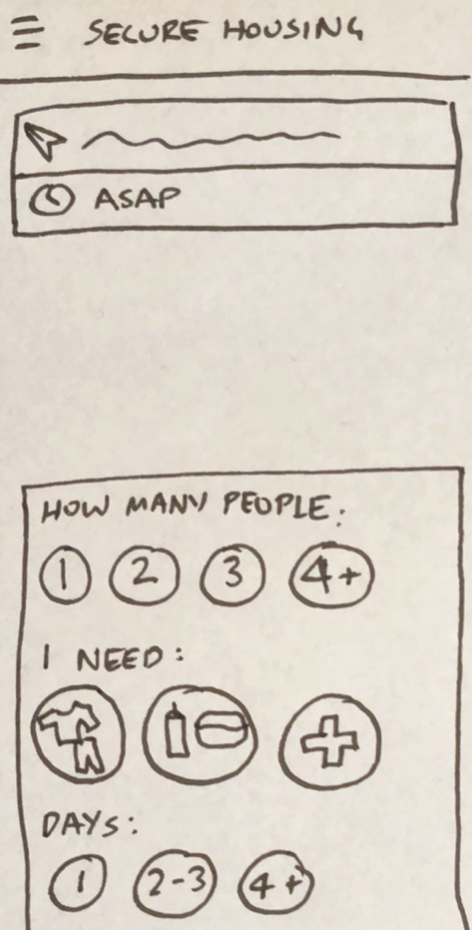 SECURE HOUSING
ASAP
HOW MANY PEOPLE:
1 2 3 4+
I NEED:
DAYS:
1 2-3 4+